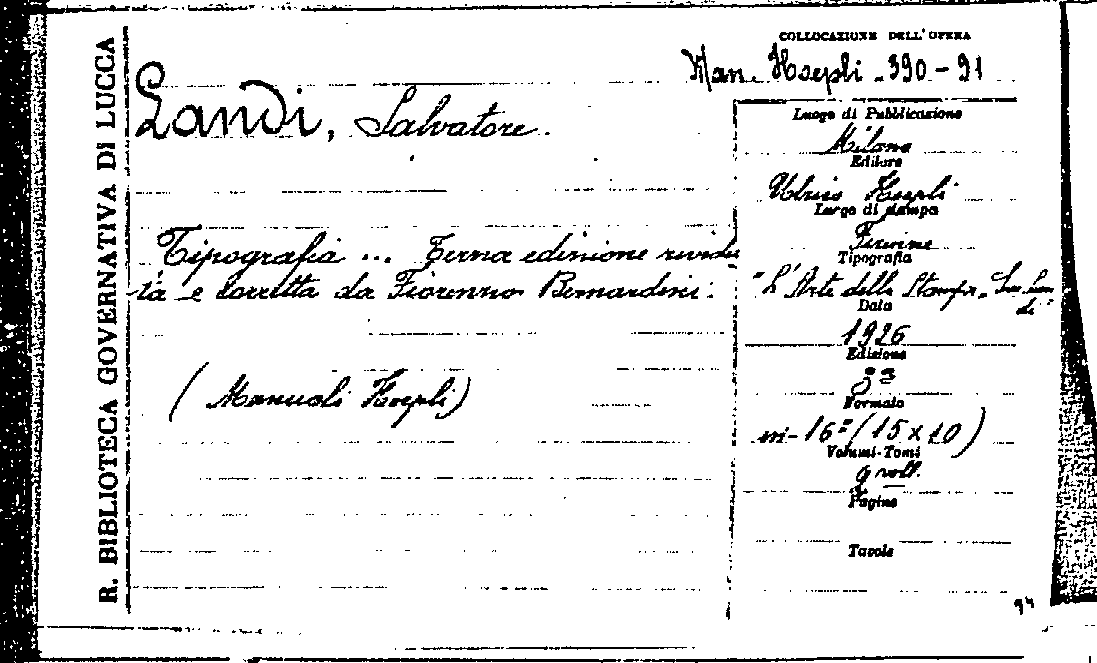 R. BIBLIOTECA GOVERNATIVA DI LUCCA
COLLOCAZIONE DELL'OPERA
Man. Hoepli - 390-91
Landi, Salvatore.
Tipografia ... Terza edizione rivedu
ta e corretta da Fiorenzo Bernardini.
(Manuali Hoepli)
Luogo di Pubblicazione
Milano
Editore
Ulrico Hoepli
Luogo di stampa
Firenze
Tipografia
"L'Arte della Stampa"
Data
1926
Edizione
3ª
Formato
in-16º (15 x 10)
Volumi-Tomi
voll.
Pagine
Tavole
94